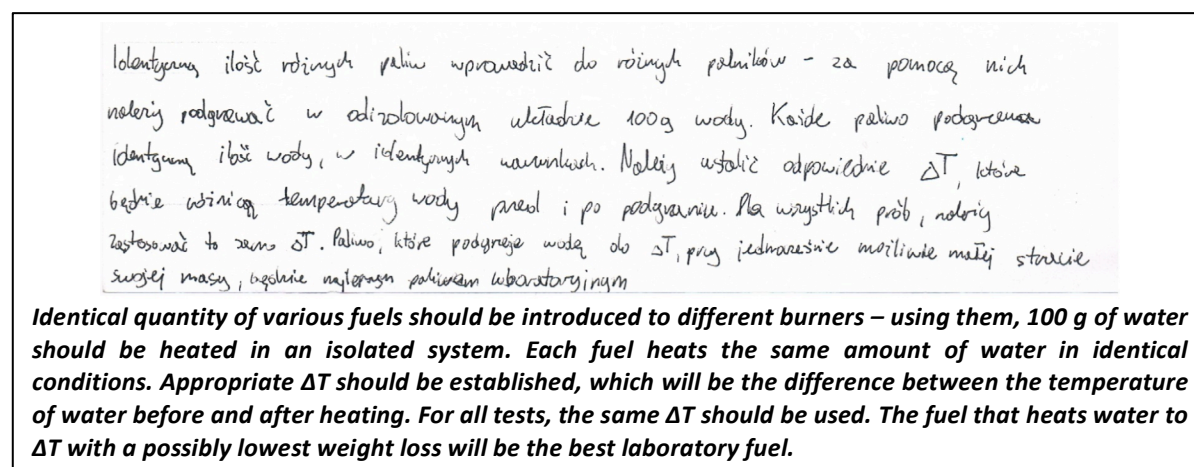 Identyczną ilość różnych paliw wprowadzić do różnych palników – za pomocą nich
należy podgrzewać w odizolowanym układzie 100g wody. Każde paliwo podgrzewa
identyczną ilość wody, w identycznych warunkach. Należy ustalić odpowiednie ΔT, które
będzie różnicą temperatury wody przed i po podgrzaniu. Dla wszystkich prób, należy
zastosować to samo ΔT. Paliwo, które podgrzeje wodę do ΔT, przy jednocześnie możliwie małej stracie
swojej masy, będzie najlepszym paliwem laboratoryjnym
Identical quantity of various fuels should be introduced to different burners – using them, 100 g of water
should be heated in an isolated system. Each fuel heats the same amount of water in identical
conditions. Appropriate ΔT should be established, which will be the difference between the temperature
of water before and after heating. For all tests, the same ΔT should be used. The fuel that heats water to
ΔT with a possibly lowest weight loss will be the best laboratory fuel.